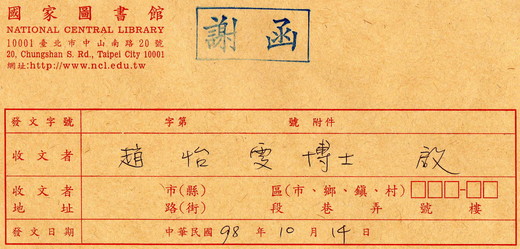 國家圖書館
NATIONAL CENTRAL LIBRARY
10001 臺北市中山南路20號
20, Chungshan S. Rd., Taipei City 10001
網址:http://www.ncl.edu.tw
謝函
發文字號 字第 號 附件
收文者 趙怡雯博士 啟
收文者地址 市(縣) 區(市、鄉、鎮、村) □□□-□□
路(街) 段 巷 弄 號 樓
發文日期 中華民國 98 年 10 月 14 日